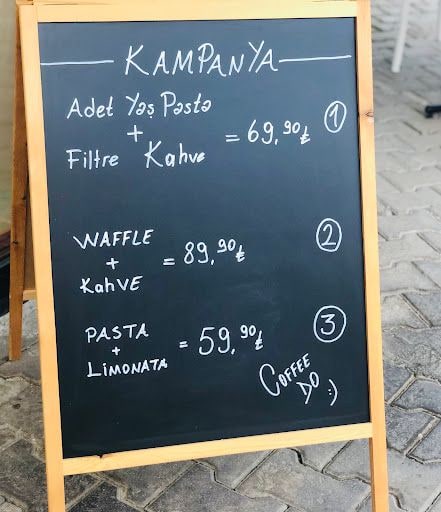 KAMPANYA
Adet Yaş Pasta
+
Filtre Kahve
= 69,90₺
1
WAFFLE
+
KahVE
= 89,90₺
2
PASTA
+
LİMONATA
= 59,90₺
3
COFFEE
DO :)